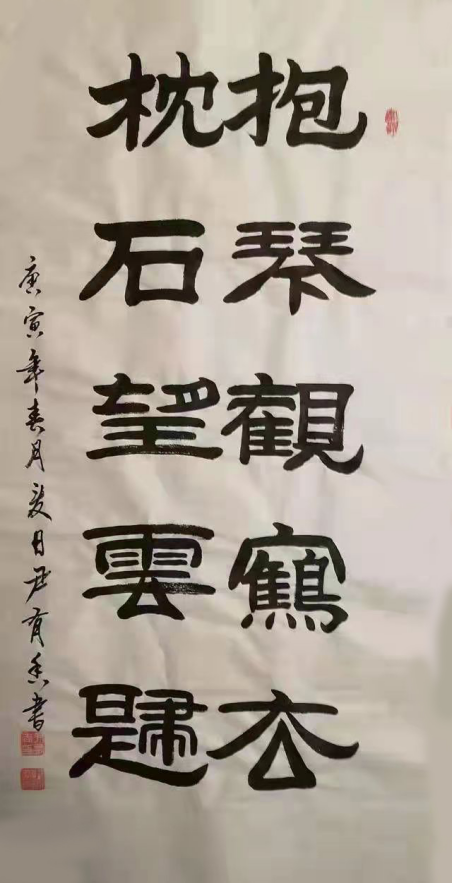 抱琴觀鶴去
枕石望雲歸
庚寅年春月夏日尹有書